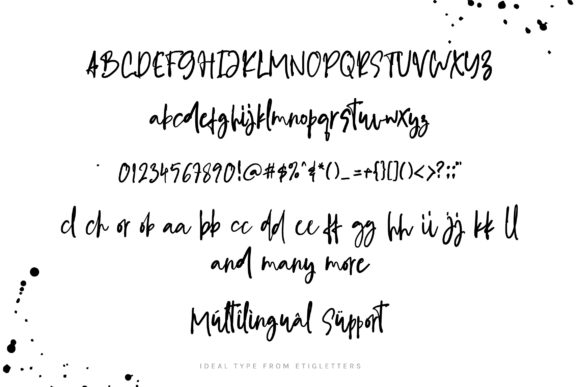 ABCDEFGHIJKLMNOPQRSTUVWXYZ
abcdefghijklmnopqrstuvwxyz
01234567890!@#$%^&*()_=+{}[]()<>?;:"
cl ch or ob aa bb cc dd ee ff gg hh ii jj kk ll
and many more
Múltilinguàl Süpport
IDEAL TYPE FROM ETIGLETTERS